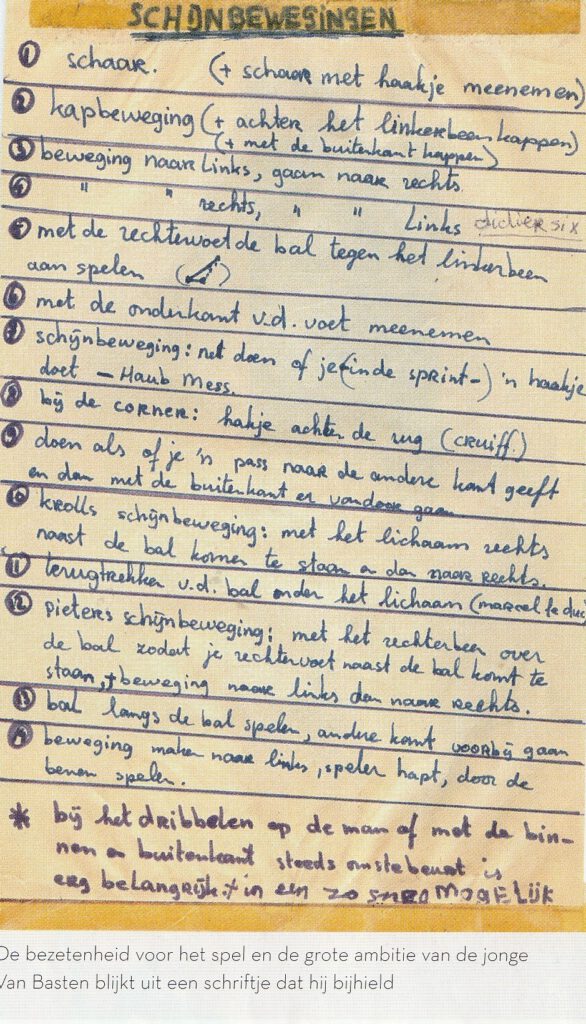 SCHIJNBEWEGINGEN
1 schaar. (+ schaar met haakje meenemen)
2 kapbeweging (+ achter het linkerbeen kappen)
(+ met de buitenkant kappen)
3 beweging naar Links, gaan naar rechts.
4 " " rechts, " " Links didier six
5 met de rechtervoet de bal tegen het linkerbeen
aan spelen
6 met de onderkant v.d. voet meenemen
7 schijnbeweging: net doen of je (in de sprint-) 'n haakje
doet - Haub Mess.
8 bij de corner: hakje achter de rug (CRuiff.)
9 doen als of je 'n pass naar de andere kant geeft
en dan met de buitenkant er vandoor gaan
10 KROlls schijnbeweging: met het lichaam rechts
naast de bal komen te staan en dan naar rechts.
11 terugtrekken v.d. bal onder het lichaam (marcel
12 pieters schijnbeweging: met het rechterbeen over
de bal zodat je rechtervoet naast de bal komt te
staan, + beweging naar links dan naar rechts.
13 bal langs de bal spelen, andere kant voorbij gaan
14 beweging maken naar links, speler hapt, door de
benen spelen.
* bij het dribbelen op de man of met de bin-
nen en buitenkant steeds omstebeurt is
erg belangrijk + in een zo snel MOGELIJK
De bezetenheid voor het spel en de grote ambitie van de jonge
Van Basten blijkt uit een schriftje dat hij bijhield